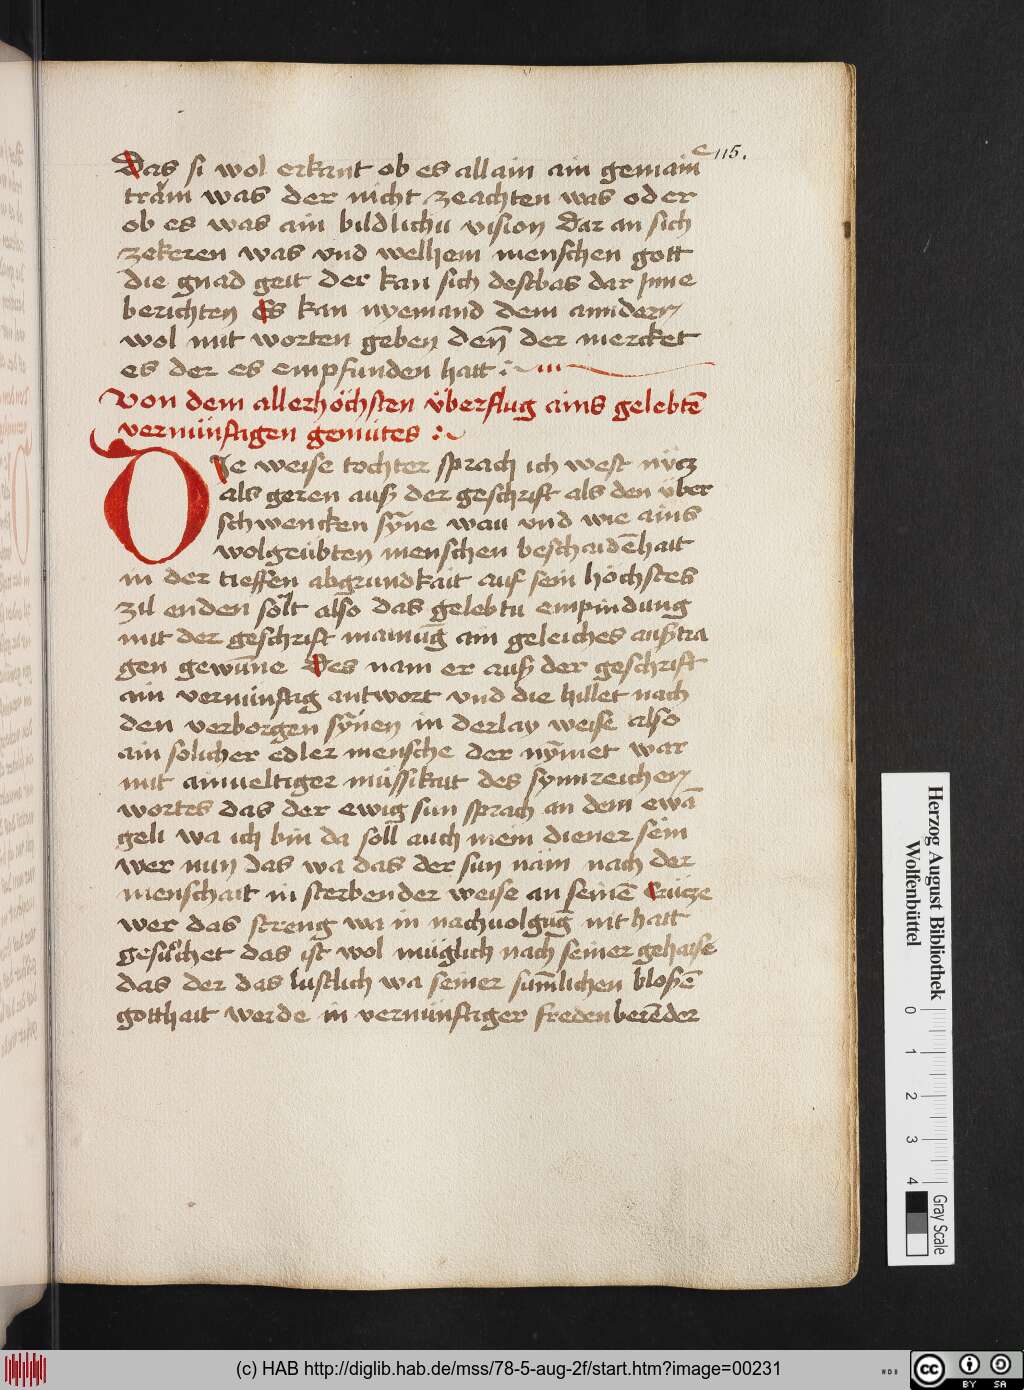 115.
Das si wol erkant ob es allain ain gemain
tråm was der nicht zeachten was oder
ob es was ain bildlichu vision dar an sich
zekeren was vnd welhem menschen gott
die gnad geit der kan sich destbas dar Jnne
berichten Es kan nyemand dem anndern
wol mit worten geben den̄ der mercket
es der es empfunden hatt :~
Von dem allerhöchsten v̈berflug ains gelebtē
vernünftigen gemütes :~
DIe weise tochter sprach ich west nücz
als geren auß der geschrift als den v̈ber
schwencken sỹne wau vnd wie ains
wolgeübten menschen beschaidēhait
in der tieffen abgrundkait auf sein höchstes
zil enden sölt also das gelebtu empindung
mit der geschrift mainūg ain geleiches außtra
gen gewūne Des nam er auß der geschrift
ain vernünftig antwort vnd die hillet nach
den verborgen sỹnen in derlay weise also
ain solicher edler mensche der nỹmet war
mit ainueltiger müssikait des synnreichen
wortes das der ewig sun sprach an dem ewā
geli wa ich bin da soll auch mein diener sein
wer nun das wa das der sun nam nach der
menschait in sterbender weise an seinē Crücze
wer das streng wa in nachuolgūg nit hatt
gesüchet das ist wol müglich nach seiner gehaise
das der das lustlich wa seiner sūnlichen bloßē
gotthait werde in vernünftiger freden berēder
Herzog August Bibliothek
Wolfenbüttel
0 1 2 3 4
Gray Scale
(c) HAB http://diglib.hab.de/mss/78-5-aug-2f/start.htm?image=00231
WDB
cc BY SA